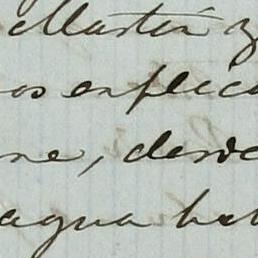 Martin y
os esplica
ne, desde
agua hab